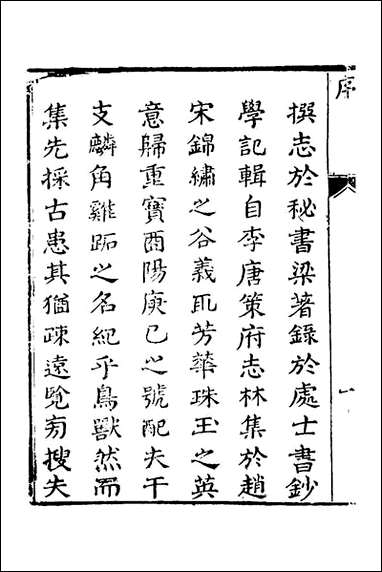 序
一
撰志於秘書梁著錄於處士書鈔
學記輯自李唐策府志林集於趙
宋錦繡之谷義取芳華珠玉之英
意歸重寶酉陽庚巳之號配夫干
支麟角雞跖之名紀乎鳥獸然而
集先採古患其猶疎遠覽旁搜失